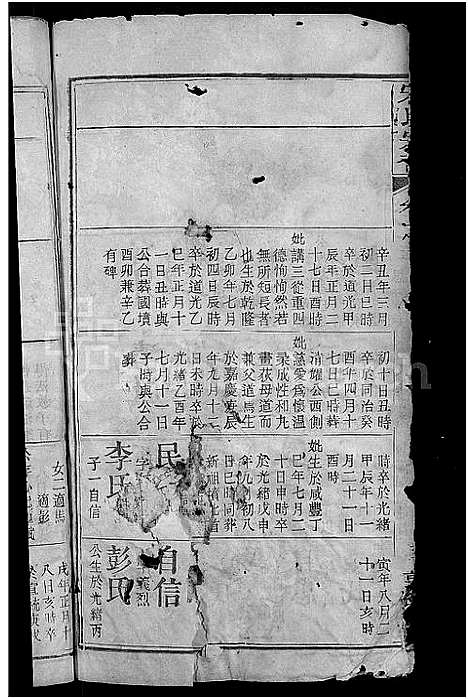 辛丑年三月
初二日巳時
卒於道光甲
辰年正月二
十七日酉時
妣講三從重四
德恂恂然若
無所短長者
也生於乾隆
乙卯年七月
初四日辰時
卒於道光乙
巳年正月十
一日丑時與
公合葬國墳
酉卯兼辛乙
有碑
初十日丑時
卒於同治癸
酉年四月十
七日巳時葬
清耀公西側
妣慈愛爲懷溫
柔成性和九
畫荻母道而
兼父道焉生
於嘉慶
年九月十二
日未時卒於
光緒乙酉年
七月十一日
子時與公合
時卒於光緒
甲辰年十一
月二十一日
酉時
妣生於咸豐丁
巳年七月二
十日申時卒
於光緒戊申
年九月初八
日巳時同葬
新祖墳
民
李氏
子一自信
寅年八月二
十一日亥時
自信
義烈
彭氏
公生於光緒丙
女二適馬
適彭
戌年正月十
八日亥時卒